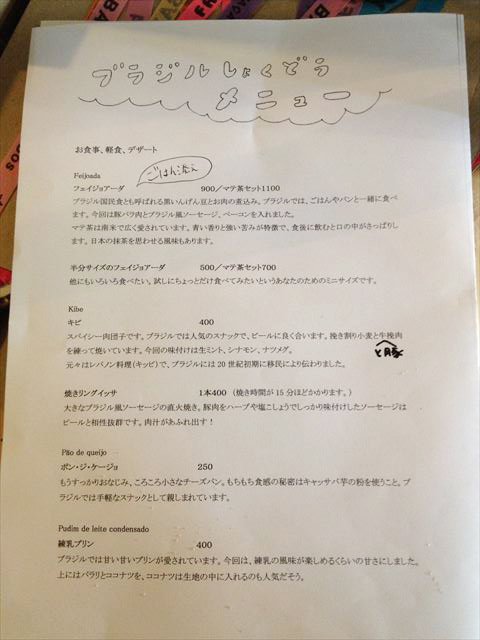 ブラジルしょくどう
メニュー
お食事、軽食、デザート
Feijoada
ごはん添え
フェイジョアーダ 900／マテ茶セット1100
ブラジル国民食とも呼ばれる黒いんげん豆とお肉の煮込み。ブラジルでは、ごはんやパンと一緒に食べ
ます。今回は豚バラ肉とブラジル風ソーセージ、ベーコンを入れました。
マテ茶は南米で広く愛されています。青い香りと強い苦みが特徴で、食後に飲むと口の中がさっぱりし
ます。日本の抹茶を思わせる風味もあります。
半分サイズのフェイジョアーダ 500／マテ茶セット700
他にもいろいろ食べたい。試しにちょっとだけ食べてみたいというあなたのためのミニサイズです。
Kibe
キビ 400
スパイシー肉団子です。ブラジルでは人気のスナックで、ビールに良く合います。挽き割り小麦と牛挽肉
と豚
を練って焼いています。今回の味付けは生ミント、シナモン、ナツメグ。
元々はレバノン料理(キッビ)で、ブラジルには 20 世紀初期に移民により伝わりました。
焼きリングイッサ 1本400 （焼き時間が15分ほどかかります。）
大きなブラジル風ソーセージの直火焼き。豚肉をハーブや塩こしょうでしっかり味付けしたソーセージは
ビールと相性抜群です。肉汁があふれ出す！
Pão de queijo
ポン・ジ・ケージョ 250
もうすっかりおなじみ、ころころ小さなチーズパン。もちもち食感の秘密はキャッサバ芋の粉を使うこと。ブ
ラジルでは手軽なスナックとして親しまれています。
Pudim de leite condensado
練乳プリン 400
ブラジルでは甘い甘いプリンが愛されています。今回は、練乳の風味が楽しめるくらいの甘さにしました。
上にはパラリとココナツを、ココナツは生地の中に入れるのも人気だそう。